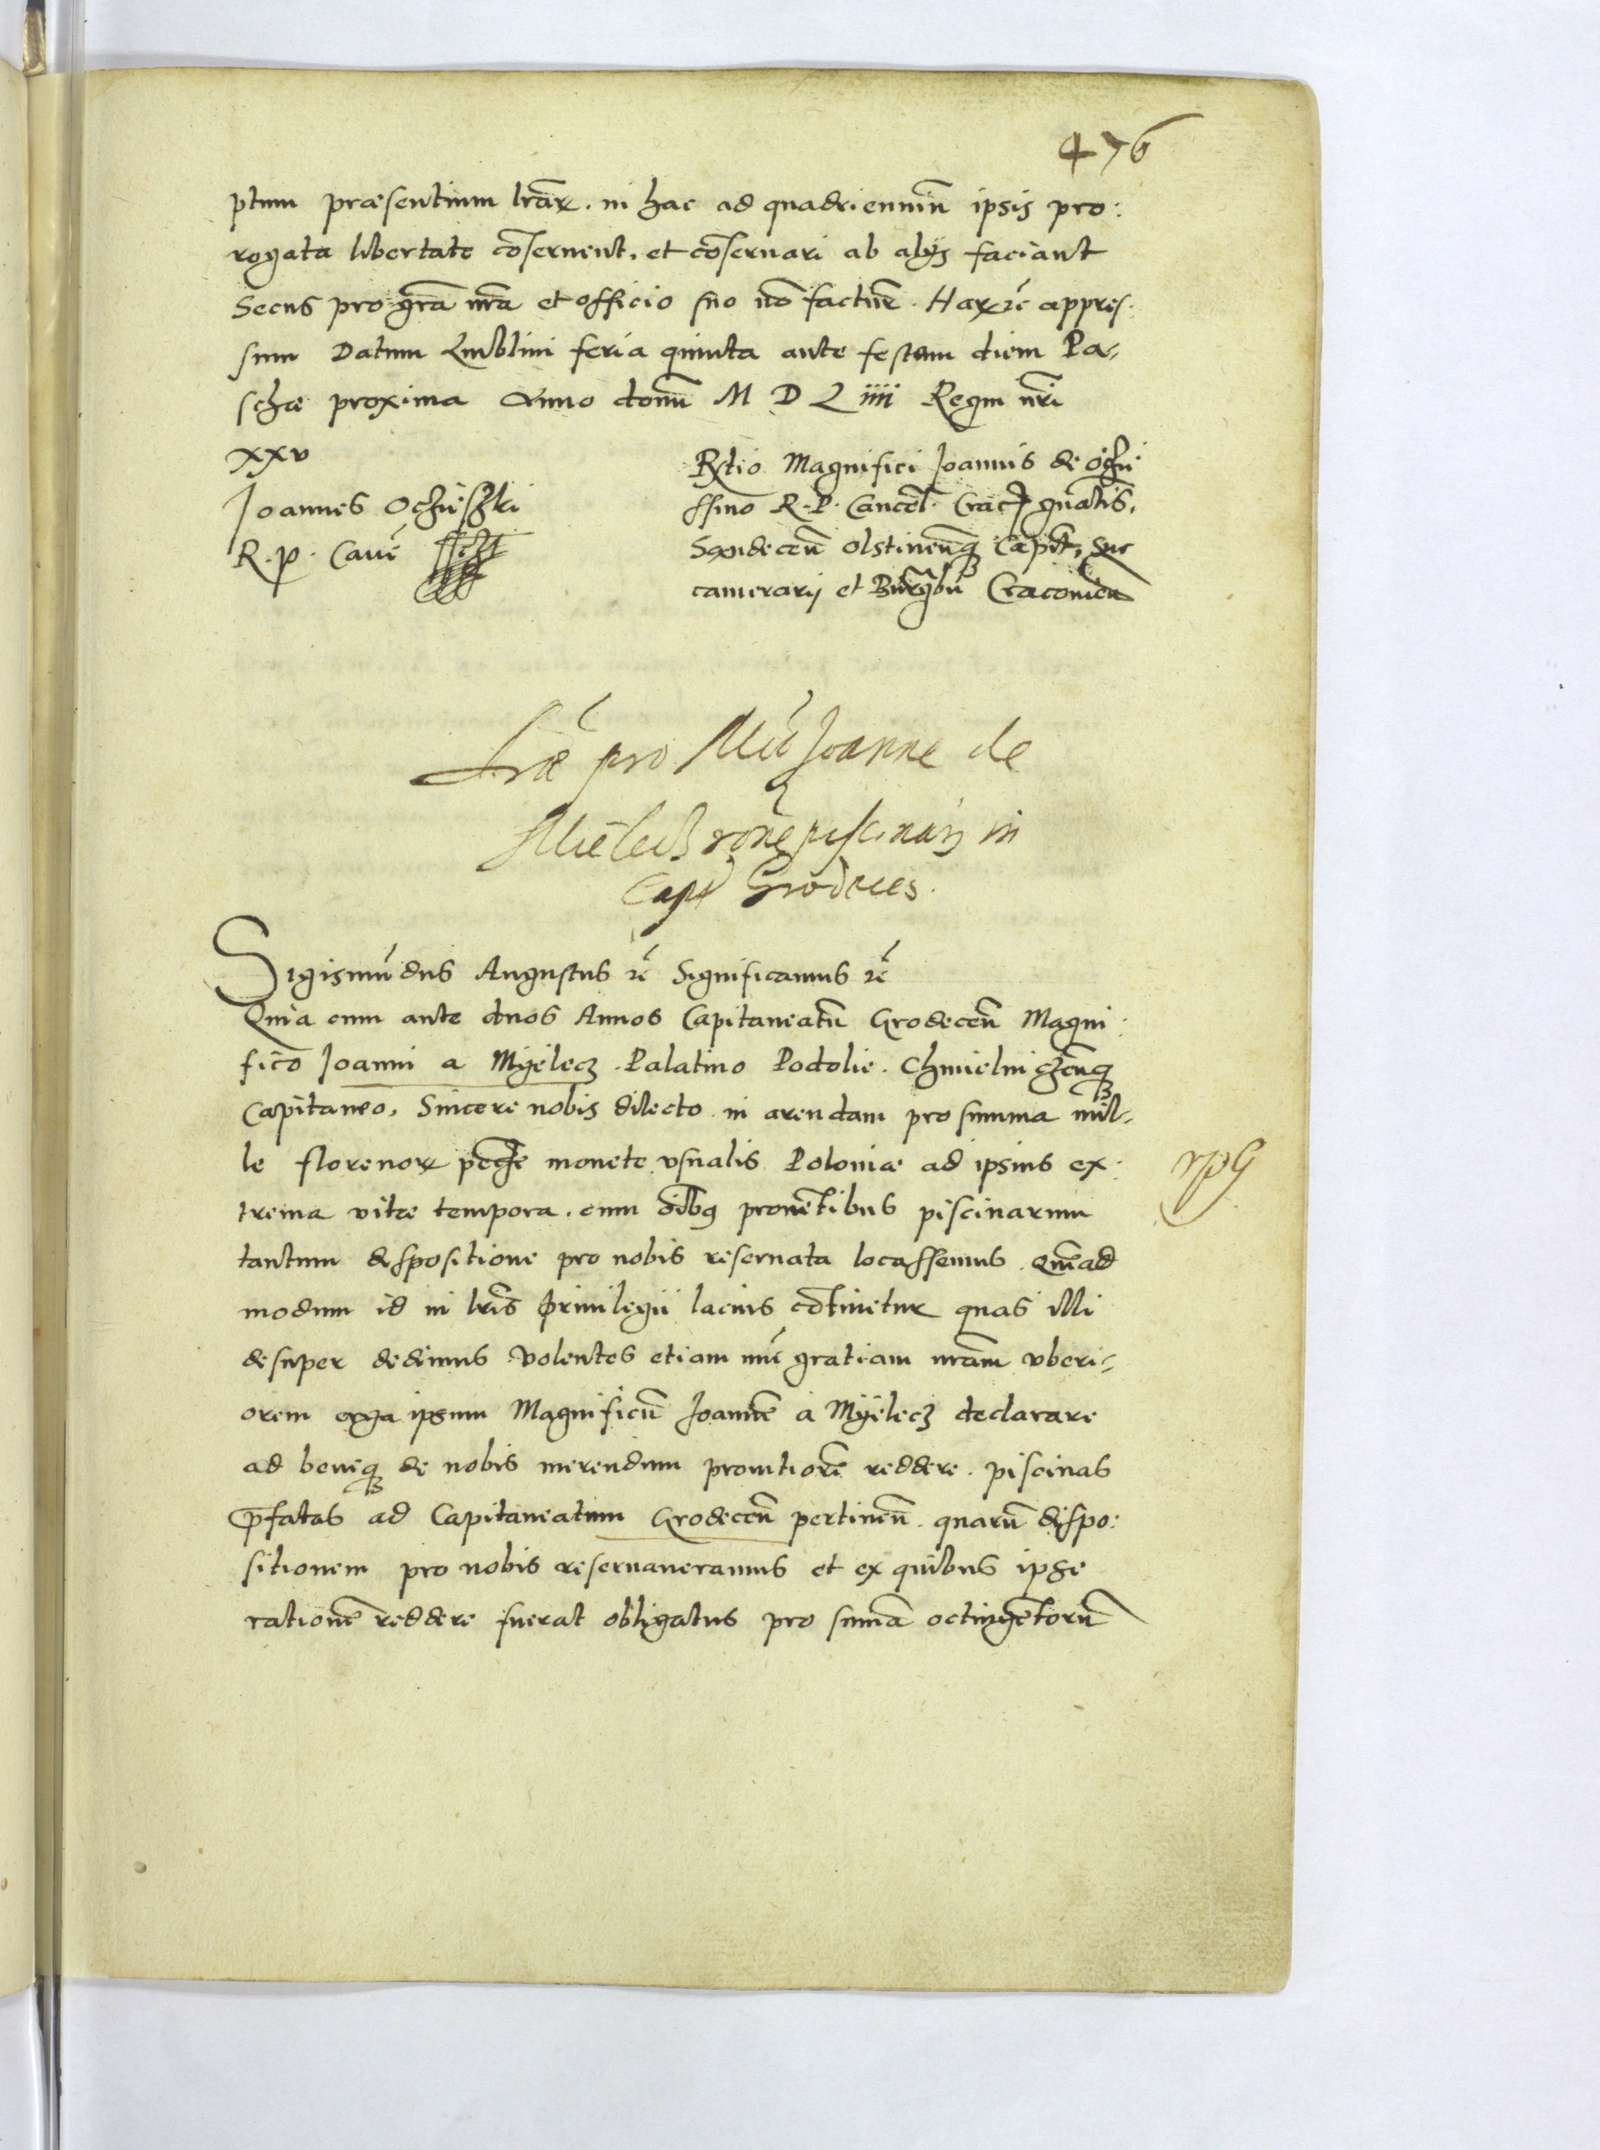 476
ptum præsentium lrãr. in hac ad quadrienniũ ipsis pro:
rogata libertate cõservent. et cõservari ab alÿs faciant
Secus pro grã nrã et officio suo nõ facture. Har rẽ appres:
sum Datum Lublini feria quinta ante festam diem Pa-
schæ proxima Anno domĩ M D L iiii Regni nrĩ
xxv
Rltio Magnifici Joannis de Oczie
Joannes Oczieszki
ssino R. P. Cancel. Crac gnalis,
R. P. Canc̃
Sandeceñ Olstineñq Capit, Suc
camerarij et Burgbũ Cracovieñ
Lræ pro Mco Joanne de
Mielecz rõne piscinarũ in
Capt Grodeceñ.
Sigismũdus Augustus rẽ Significamus rẽ
Quia cum ante duos Annos Capitaneatũ Grodeceñ Magni:
fico Joanni a Mÿelecz Palatino Podolie. Chmielniczeñq
Capitaneo, Sincere nobis dilecto in arendam pro summa mil-
le florenor pecũe monete usualis Poloniæ ad ipsius ex:
trema vitæ tempora. cum oĩbq provẽtibus piscinarum
tantum dispositione pro nobis reservata locassemus Quẽad
modum id in lrĩs privilegii lacius cõtinetur quas illi
desuper dedimus Volentes etiam nũc gratiam nrãm uberi-
orem erga ipsum Magnificũ Joannẽ a Mÿelecz declarare
ad beneq de nobis merendum promtiorẽ reddere. piscinas
p̃fatas ad Capitaneatum Grodeceñ pertineñ. quarũ dispo:
sitionem pro nobis reservaveramus et ex quibus ipse
rationẽ reddere fuerat obligatus pro sumã octingẽtorũ